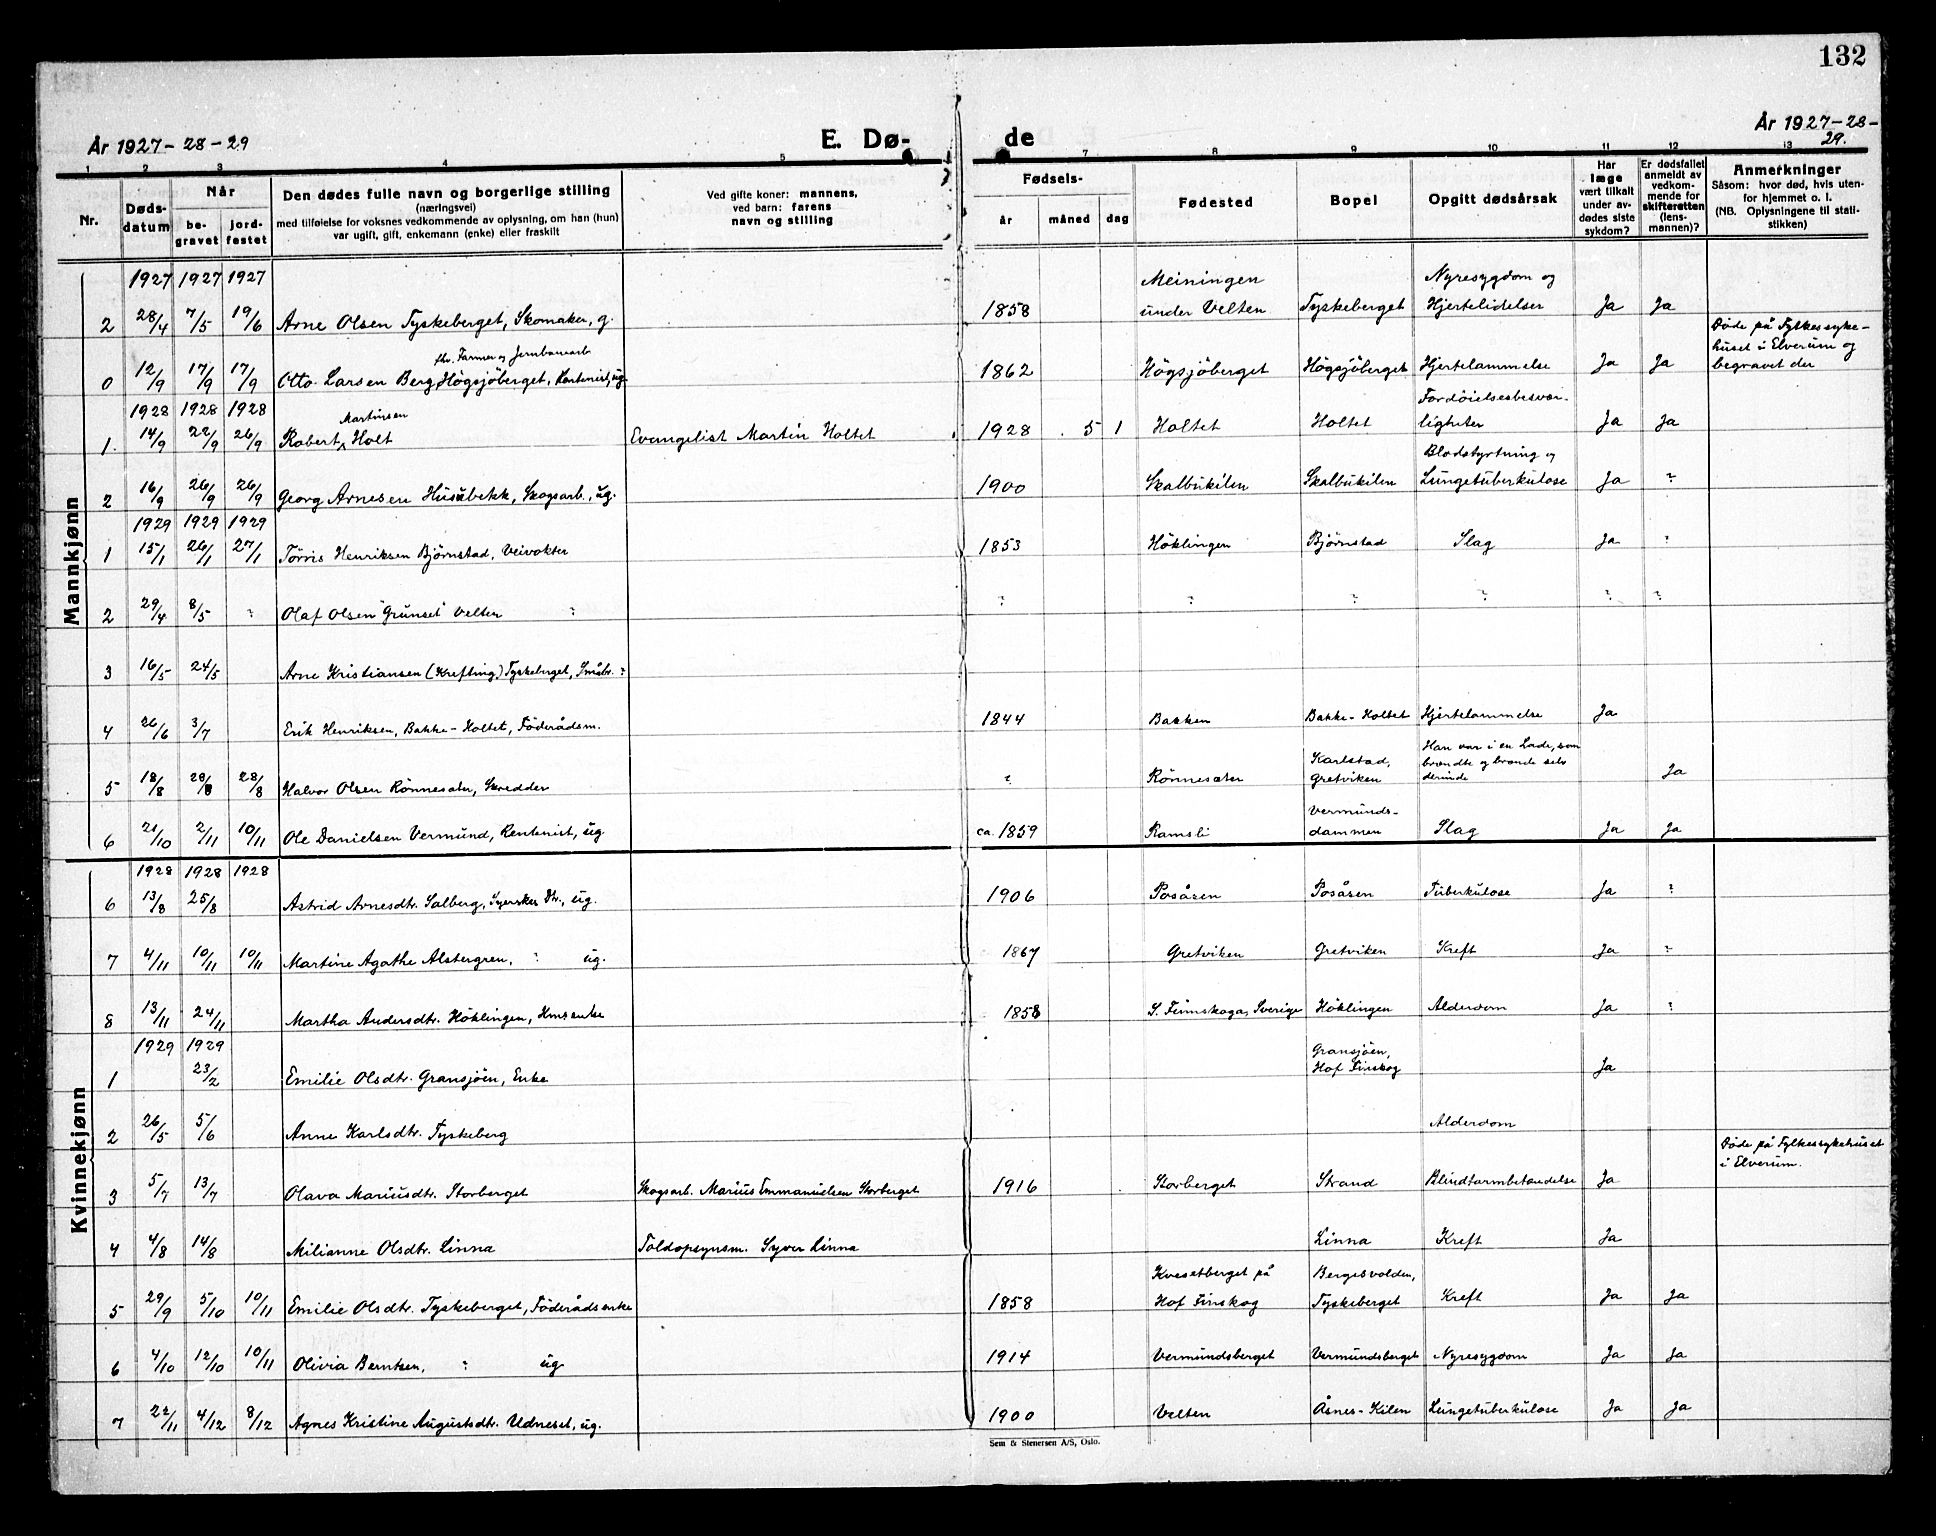 132
År 1927-28-29
E. Dø-
de
År 1927-28-
29.
1 2 3 4 5 7 8 9 10 11 12 13
Nr.
Døds-
datum
Når
be-
gravet
jord-
festet
Den dødes fulle navn og borgerlige stilling
(næringsvei)
med tilføielse for voksnes vedkommende av oplysning, om han (hun)
var ugift, gift, enkemann (enke) eller fraskilt
Ved gifte koner: mannens,
ved barn: farens
navn og stilling
Fødsels-
år måned dag
Fødested
Bopel
Opgitt dødsårsak
Har
læge
vært tilkalt
under av-
dødes siste
sykdom?
Er dødsfallet
anmeldt av
vedkom-
mende for
skifteretten
(lens-
mannen)?
Anmerkninger
Såsom: hvor død, hvis uten-
for hjemmet o. l.
(NB. Oplysningene til stati-
stikken)
Mannkjønn
1927 1927 1927 Meiningen Nyresygdom og
2 28/4 7/5 19/6 Arne Olsen Tyskeberget, Skomaker, g. 1858 under Velten Tyskeberget Hjertelidelser Ja Ja
fhv. Farmer og Jernbanearb. Døde på Fylkessyke-
huset i Elverum og
0 12/9 17/9 17/9 Otto Larsen Berg, Högsjöberget, Rentenist, ug. 1862 Högsjöberget Högsjöberget Hjertelammelse Ja Ja begravet der
1928 1928 1928 Martinsen Fordöielsesbesvær-
1. 14/9 22/9 26/9 Robert Holt Evangelist Martin Holtet 1928 5 1 Holtet Holtet ligheter Ja Ja
Blodstyrtning og
2 16/9 26/9 26/9 Georg Arnesen Husubekk, Skogsarb., ug. 1900 Skalbukilen Skalbukilen Lungetuberkulose Ja ?
1929 1929 1929
1 15/1 26/1 27/1 Törris Henriksen Björnstad, Veivokter 1853 Höklingen Björnstad Slag Ja ?
2 29/4 8/5 ? Olaf Olsen "Grunset" Velten ? ? ? ? ? ? ?
3 16/5 24/5 Arne Kristiansen (Krefting) Tyskeberget, Småbr. ?
4 26/6 3/7 Erik Henriksen, Bakke-Holtet, Föderådsm. 1844 Bakken Bakke-Holtet Hjertelammelse Ja
Karlstad, Han var i en Lade, som
brændte og brænde selv
5 18/8 28/8 28/8 Halvor Olsen Rönnesater, Skredder ? Rönnesater Gretviken derinde Ja
Vermunds-
6 21/10 2/11 10/11 Ole Danielsen Vermund, Rentenist, ug. ca. 1859 Ramsli dammen Slag Ja Ja
Kvinnekjønn
1928 1928 1928
6 13/8 25/8 Astrid Arnesdtr. Solberg, Syerske, ug. 1906 Posåsen Posåsen Tuberkulose Ja ?
7 4/11 10/11 10/11 Martine Agathe Alstergren, ? ug. 1867 Gretviken Gretviken Kreft Ja ?
8 13/11 24/11 Martha Andersdtr. Höklingen, Hmsenke 1858 S. Finnskoga, Sverige Höklingen Alderdom Ja ?
1929 1929 Gransjöen,
1 23/2 Emilie Olsdtr. Gransjöen, Enke Hof Finskog Ja
2 26/5 5/6 Anne Karlsdtr. Tyskeberg Alderdom
Døde på Fylkessykehuset
i Elverum.
3 5/7 13/7 Olava Mariusdtr. Storberget Skogsarb. Marius Emmanuelsen Storberget 1916 Storberget Strand Blindtarmbetændelse Ja
4 4/8 14/8 Milianne Olsdtr. Linna Toldopsynsm. Syver Linna Linna Kreft Ja
Kvesetberget på Bergesvolden,
5 29/9 5/10 10/11 Emilie Olsdtr. Tyskeberget, Föderådsenke 1858 Hof Finskog Tyskeberget Kreft Ja Ja
6 4/10 12/10 10/11 Olivia Berntsen, ? ug. 1914 Vermundsberget Vermundsberget Nyresygdom Ja Ja
7 22/11 4/12 8/12 Agnes Kristine Augustsdtr. Udneset, ug. 1900 Velten Åsnes-Kilen Lungetuberkulose Ja Ja
Sem & Stenersen A/S, Oslo.